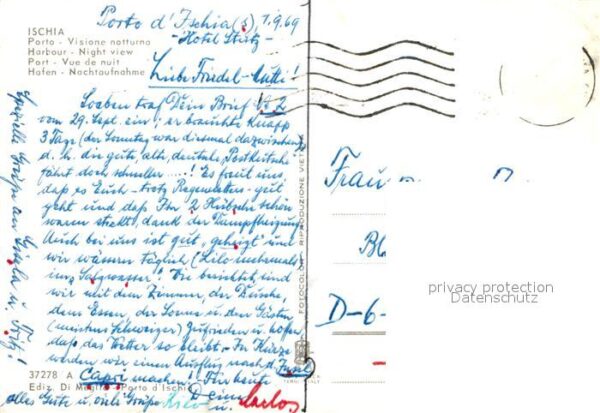 Porto d'Ischia (s), 1.9.69
- Hotel Stutz -
ISCHIA
Porto - Visione notturna
Harbour - Night view
Port - Vue de nuit
Hafen - Nachtaufnahme
Liebe Friedel-Mutti!
Soeben traf Dein Brief N° 2
vom 29. Sept. ein; er brauchte knapp
3 Tage (der Sonntag war diesmal dazwischen)
d. h. die gute, alte deutsche Postkutsche
fährt doch schneller ....! Es freut uns
daß es Euch - trotz Regenwetter - gut
geht und daß Ihr 2 Hübsche schön
warm steckt, dank der Dampfheizung
Auch bei uns ist gut "geheizt" und
wir wässern täglich (Lilo mehrmals
im "Salzwasser"! Wie berichtet sind
wir mit dem Zimmer, der Dusche,
dem Essen, der Sonne u. den Gästen
(meistens Schweizer) zufrieden u. hoffen,
daß das Wetter so bleibt. In Kürze
werden wir einen Ausflug nach d. Insel
Capri machen! Für heute
alles Gute u. viele Grüße
Deine
u. Carlos
Spezielle Grüße an Gisela u. Fritz!
37278 A
Ediz. Di Meglio - Porto d'Ischia
FOTOCOLOR - RIPRODUZIONE VIETATA
Frau
D-6-
privacy protection
Datenschutz